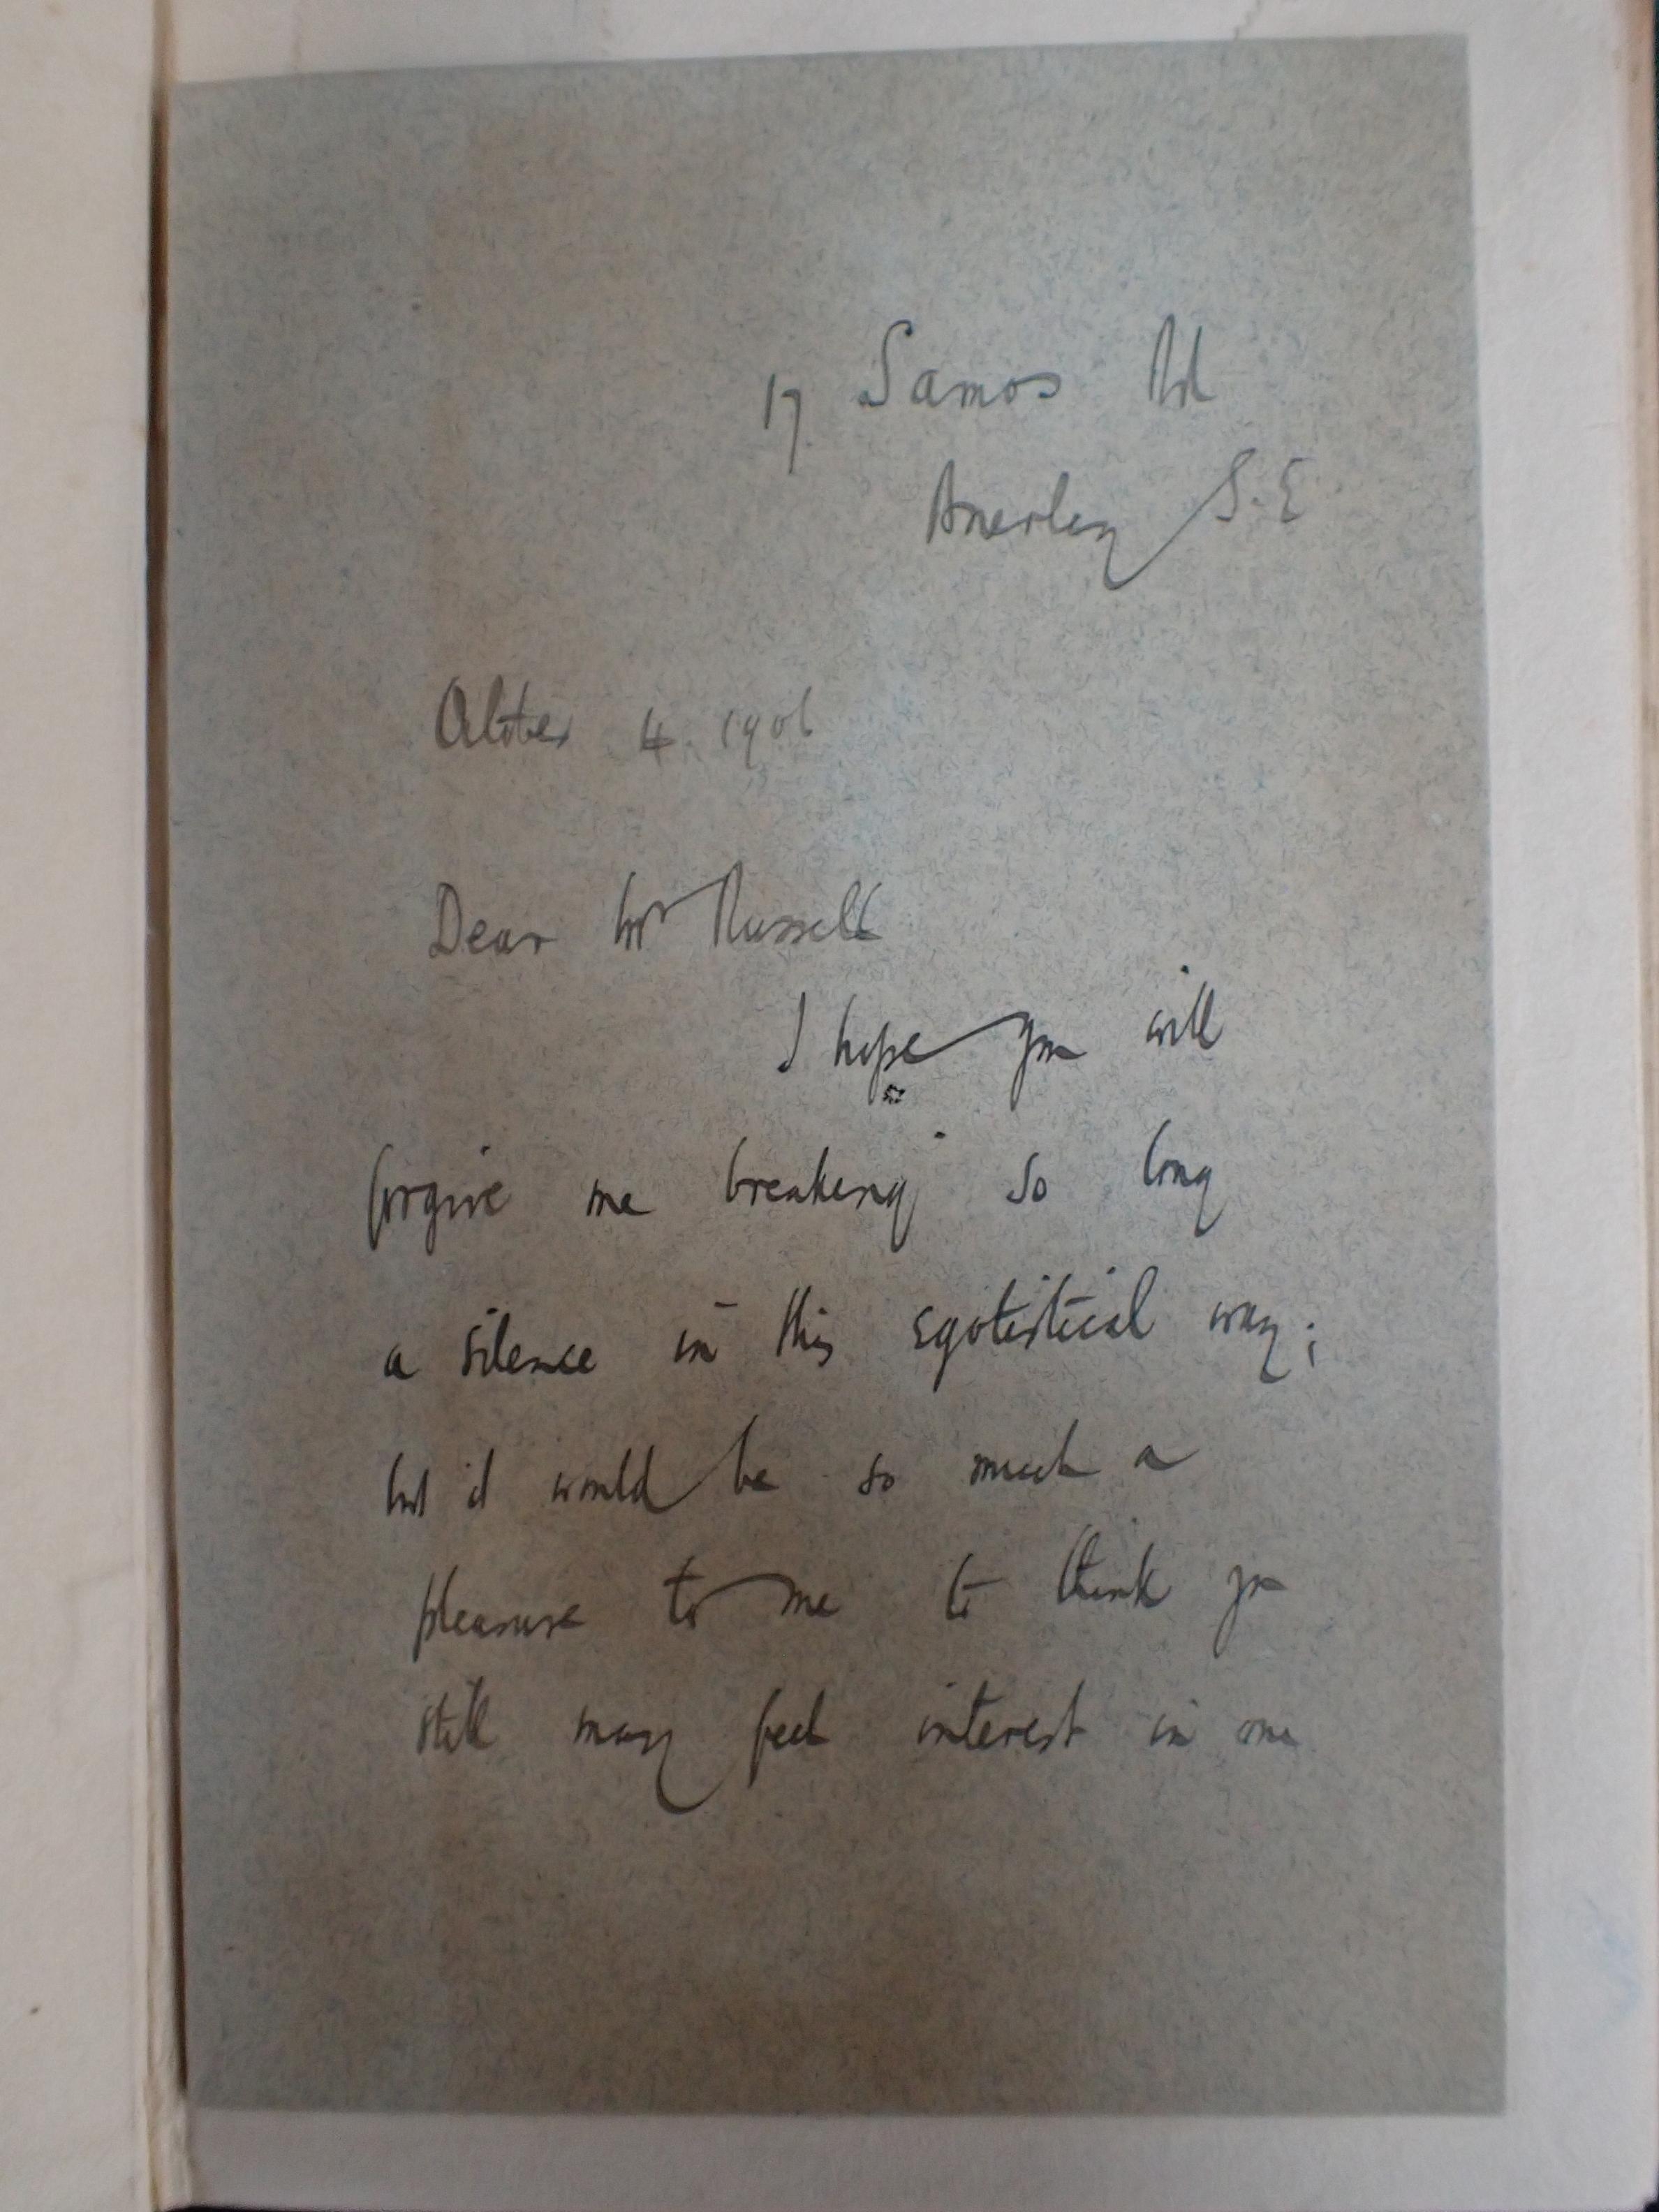 17 Samos Rd
Anerley S.E
October 4. 1906
Dear Mr Russell
I hope you will
forgive me breaking so long
a silence in this egotistical way;
but it would be so much a
pleasure to me to think you
still may feel interest in me